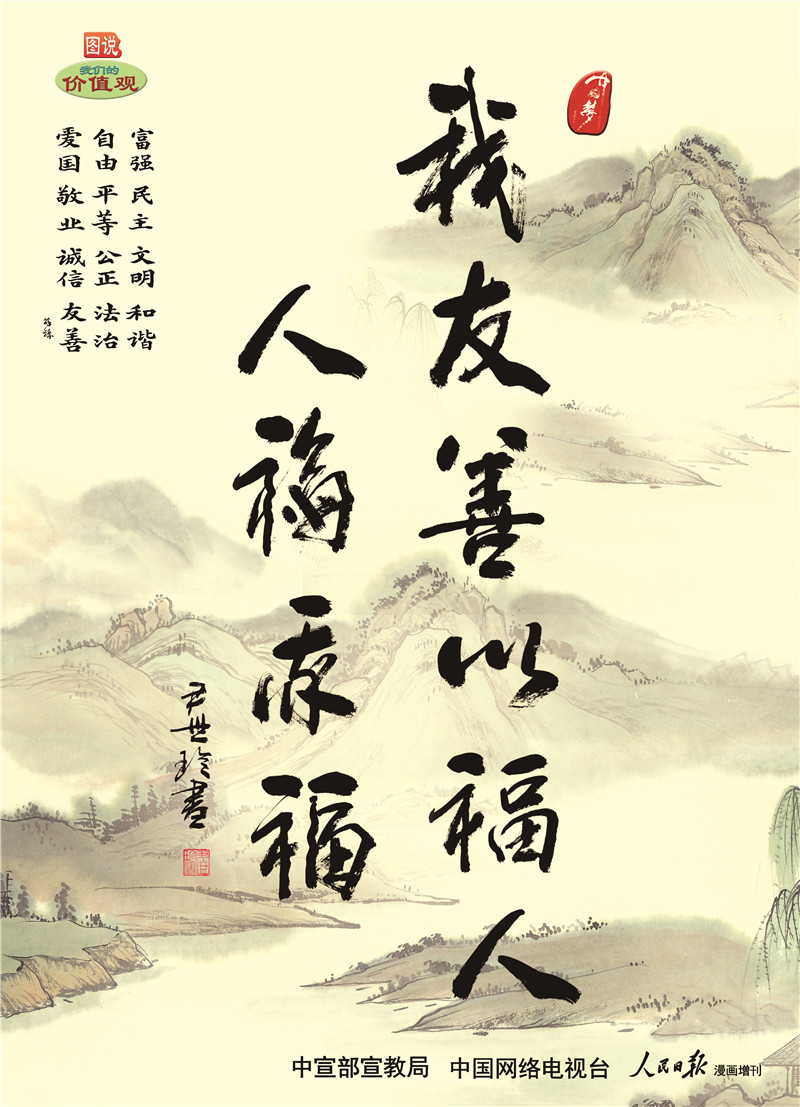 图说
我们的
价值观
中国梦
富强 民主 文明 和谐
自由 平等 公正 法治
爱国 敬业 诚信 友善
我友善以福人
人福亦福
尹世 書
中宣部宣教局 中国网络电视台 人民日报 漫画增刊